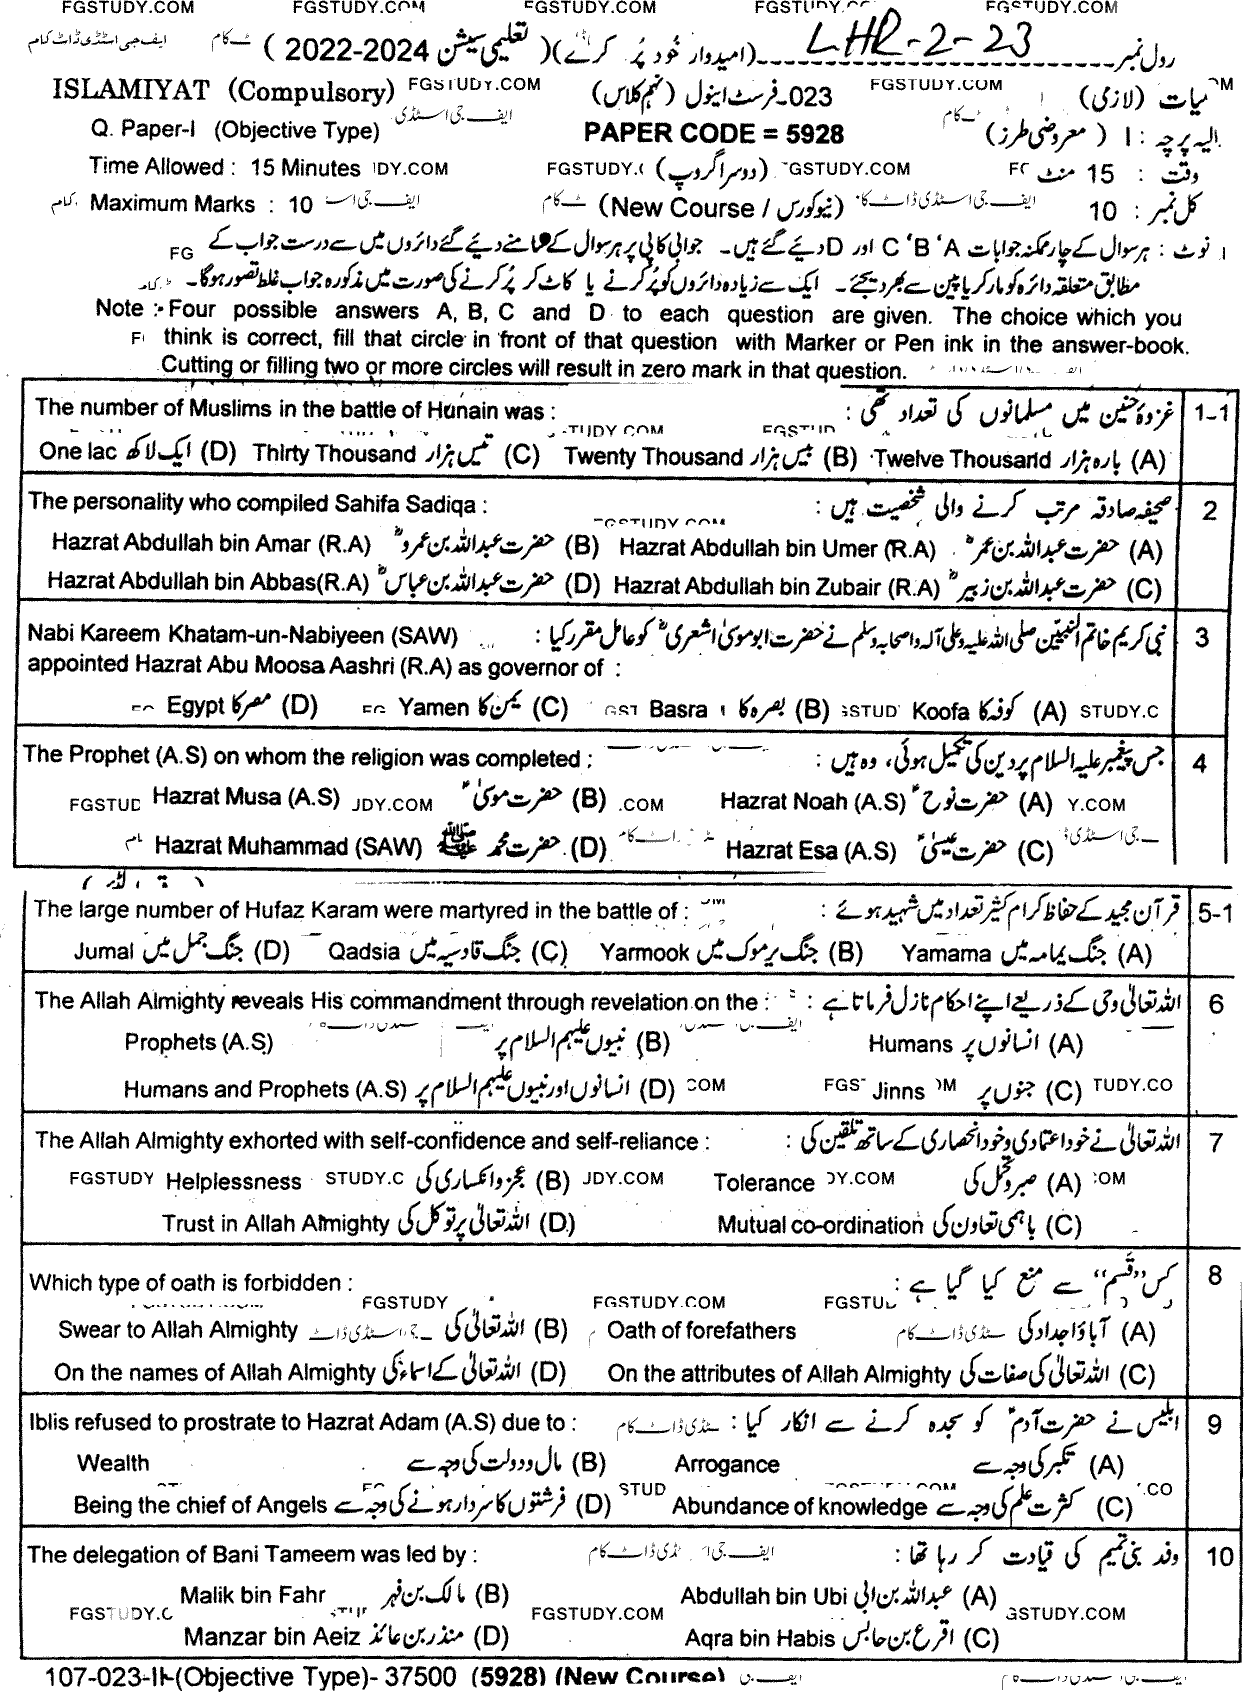 FGSTUDY.COM FGSTUDY.COM FGSTUDY.COM FGSTUDY.COM FGSTUDY.COM
رول نمبر LHR-2-23 (امیدوار خود پُر کرے) (تعلیمی سیشن 2022-2024) ٹ کام ایف جی اسٹڈی ڈاٹ کام
ISLAMIYAT (Compulsory) FGSTUDY.COM 023-فرسٹ اینول (نہم کلاس) FGSTUDY.COM میات (لازمی)
Q. Paper-I (Objective Type) ایف جی اسٹڈی PAPER CODE = 5928 ٹ کام الیہ پرچہ : I (معروضی طرز)
Time Allowed : 15 Minutes JDY.COM FGSTUDY.C (دوسرا گروپ) GSTUDY.COM FG وقت : 15 منٹ
Maximum Marks : 10 ایف جی اسٹ ٹ کام (New Course / نیوکورس) ایف جی اسٹڈی ڈاٹ کا کل نمبر : 10
نوٹ : ہر سوال کے چار ممکنہ جوابات A ، B ، C اور D دیے گئے ہیں۔ جوابی کاپی پر ہر سوال کے سامنے دیے گئے دائروں میں سے درست جواب کے FG
مطابق متعلقہ دائرہ کو مارکر یا پین سے بھر دیجئے۔ ایک سے زیادہ دائروں کو پُر کرنے یا کاٹ کر پُر کرنے کی صورت میں مذکورہ جواب غلط تصور ہوگا۔
Note :- Four possible answers A, B, C and D to each question are given. The choice which you
think is correct, fill that circle in front of that question with Marker or Pen ink in the answer-book.
Cutting or filling two or more circles will result in zero mark in that question.
The number of Muslims in the battle of Hunain was : غزوۂ حنین میں مسلمانوں کی تعداد تھی : 1-1
STUDY.COM FGSTUD
One lac ایک لاکھ (D) Thirty Thousand تیس ہزار (C) Twenty Thousand بیس ہزار (B) Twelve Thousand بارہ ہزار (A)
The personality who compiled Sahifa Sadiqa : صحیفہ صادقہ مرتب کرنے والی شخصیت ہیں : 2
GSTUDY.COM
Hazrat Abdullah bin Amar (R.A) حضرت عبداللہ بن عمروؓ (B) Hazrat Abdullah bin Umer (R.A) حضرت عبداللہ بن عمرؓ (A)
Hazrat Abdullah bin Abbas(R.A) حضرت عبداللہ بن عباسؓ (D) Hazrat Abdullah bin Zubair (R.A) حضرت عبداللہ بن زبیرؓ (C)
Nabi Kareem Khatam-un-Nabiyeen (SAW) نبی کریم خاتم النبیّین صلی اللہ علیہ وعلی آلہ واصحابہ وسلم نے حضرت ابو موسیٰ اشعریؓ کو عامل مقرر کیا : 3
appointed Hazrat Abu Moosa Aashri (R.A) as governor of :
Egypt مصر کا (D) Yamen یمن کا (C) GST Basra بصرہ کا (B) GSTUD Koofa کوفہ کا (A) STUDY.C
The Prophet (A.S) on whom the religion was completed : جس پیغمبر علیہ السلام پر دین کی تکمیل ہوئی، وہ ہیں : 4
FGSTUD Hazrat Musa (A.S) JDY.COM حضرت موسیٰؑ (B) .COM Hazrat Noah (A.S) حضرت نوحؑ (A) Y.COM
Hazrat Muhammad (SAW) حضرت محمد ﷺ (D) ٹ کام Hazrat Esa (A.S) حضرت عیسیٰؑ (C) جی اسٹڈی ڈا
The large number of Hufaz Karam were martyred in the battle of : قرآن مجید کے حفاظ کرام کثیر تعداد میں شہید ہوئے : 5-1
Jumal جنگ جمل میں (D) Qadsia جنگ قادسیہ میں (C) Yarmook جنگ یرموک میں (B) Yamama جنگ یمامہ میں (A)
The Allah Almighty reveals His commandment through revelation on the : اللہ تعالیٰ وحی کے ذریعے اپنے احکام نازل فرماتا ہے : 6
Prophets (A.S) نبیوں علیہم السلام پر (B) Humans انسانوں پر (A)
Humans and Prophets (A.S) انسانوں اور نبیوں علیہم السلام پر (D) COM FGS Jinns OM جنوں پر (C) TUDY.CO
The Allah Almighty exhorted with self-confidence and self-reliance : اللہ تعالیٰ نے خود اعتمادی و خود انحصاری کے ساتھ تلقین کی : 7
FGSTUDY Helplessness STUDY.C عجز و انکساری کی (B) JDY.COM Tolerance DY.COM صبر و تحمل کی (A) COM
Trust in Allah Almighty اللہ تعالیٰ پر توکل کی (D) Mutual co-ordination باہمی تعاون کی (C)
Which type of oath is forbidden : کس "قسم" سے منع کیا گیا ہے : 8
FGSTUDY FGSTUDY.COM FGSTU
Swear to Allah Almighty اللہ تعالیٰ کی (B) Oath of forefathers آباؤ اجداد کی (A)
On the names of Allah Almighty اللہ تعالیٰ کے اسماء کی (D) On the attributes of Allah Almighty اللہ تعالیٰ کی صفات کی (C)
Iblis refused to prostrate to Hazrat Adam (A.S) due to : ابلیس نے حضرت آدمؑ کو سجدہ کرنے سے انکار کیا : 9
Wealth مال و دولت کی وجہ سے (B) Arrogance تکبر کی وجہ سے (A)
Being the chief of Angels فرشتوں کا سردار ہونے کی وجہ سے (D) STUD Abundance of knowledge کثرت علم کی وجہ سے (C) .CO
The delegation of Bani Tameem was led by : وفد بنی تمیم کی قیادت کر رہا تھا : 10
Malik bin Fahr مالک بن فہر (B) Abdullah bin Ubi عبداللہ بن ابی (A)
FGSTUDY.C FGSTUDY.COM GSTUDY.COM
Manzar bin Aeiz منذر بن عائذ (D) Aqra bin Habis اقرع بن حابس (C)
107-023-II-(Objective Type)- 37500 (5928) (New Course)